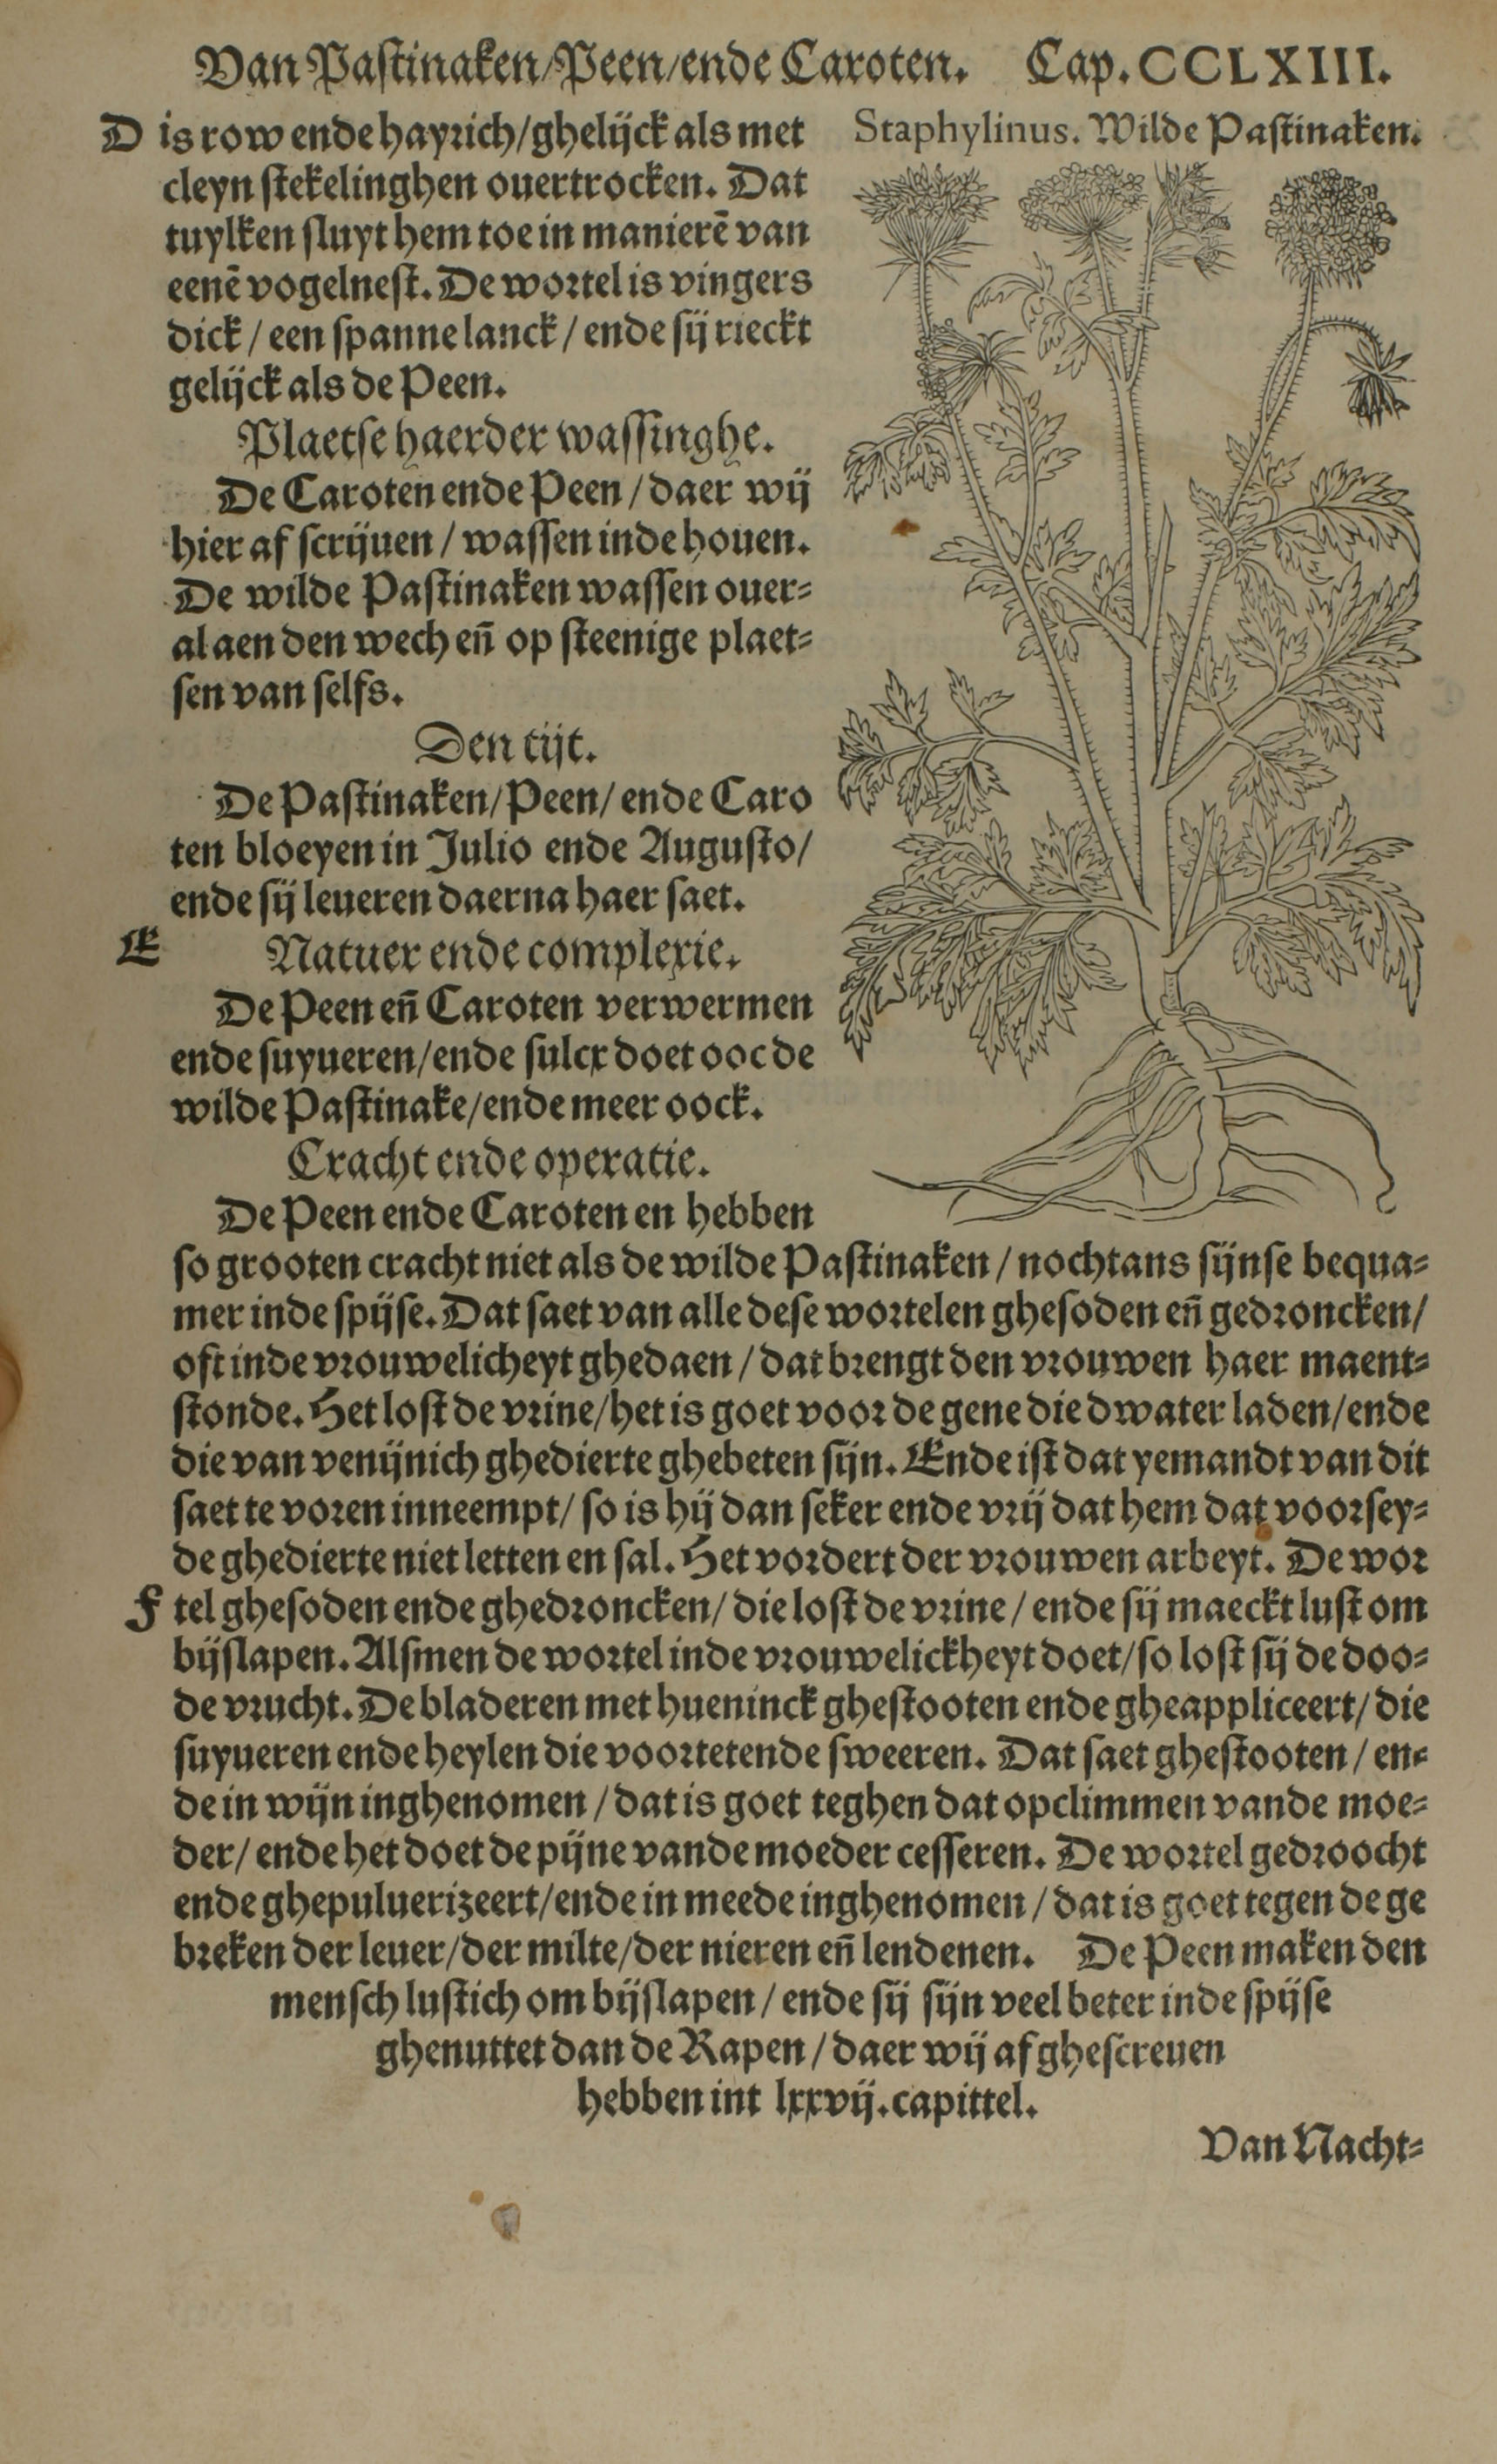 Van Pastinaken/Peen/ende Caroten. Cap. CCLXIII.
D is row ende hayrich/ghelijck als met
cleyn stekelinghen ouertrocken. Dat
tuylken sluyt hem toe in manierē van
eenē vogelnest. De wortel is vingers
dick / een spanne lanck / ende sij rieckt
gelijck als de Peen.
Plaetse haerder wassinghe.
De Caroten ende Peen / daer wij
hier af scrijuen / wassen inde houen.
De wilde Pastinaken wassen ouer-
al aen den wech eñ op steenige plaet-
sen van selfs.
Den tijt.
De Pastinaken/Peen/ ende Caro
ten bloeyen in Julio ende Augusto/
ende sij leueren daerna haer saet.
E Natuer ende complexie.
De Peen eñ Caroten verwermen
ende suyueren/ende sulcx doet ooc de
wilde Pastinake/ende meer oock.
Cracht ende operatie.
De Peen ende Caroten en hebben
Staphylinus. Wilde Pastinaken.
so grooten cracht niet als de wilde Pastinaken / nochtans sijnse bequa-
mer inde spijse. Dat saet van alle dese wortelen ghesoden eñ gedroncken/
oft inde vrouwelicheyt ghedaen / dat brengt den vrouwen haer maent-
stonde. Het lost de vrine/het is goet voor de gene die dwater laden/ende
die van venijnich ghedierte ghebeten sijn. Ende ist dat yemandt van dit
saet te voren inneempt/ so is hij dan seker ende vrij dat hem dat voorsey-
de ghedierte niet letten en sal. Het vordert der vrouwen arbeyt. De wor
F tel ghesoden ende ghedroncken/ die lost de vrine / ende sij maeckt lust om
bijslapen. Alsmen de wortel inde vrouwelickheyt doet/so lost sij de doo-
de vrucht. De bladeren met hueninck ghestooten ende gheappliceert/ die
suyueren ende heylen die voortetende sweeren. Dat saet ghestooten / en-
de in wijn inghenomen / dat is goet teghen dat opclimmen vande moe-
der/ ende het doet de pijne vande moeder cesseren. De wortel gedroocht
ende ghepuluerizeert/ende in meede inghenomen / dat is goet tegen de ge
breken der leuer/der milte/der nieren eñ lendenen. De Peen maken den
mensch lustich om bijslapen / ende sij sijn veel beter inde spijse
ghenuttet dan de Rapen / daer wij af ghescreuen
hebben int lxxvij. capittel.
Van Nacht-